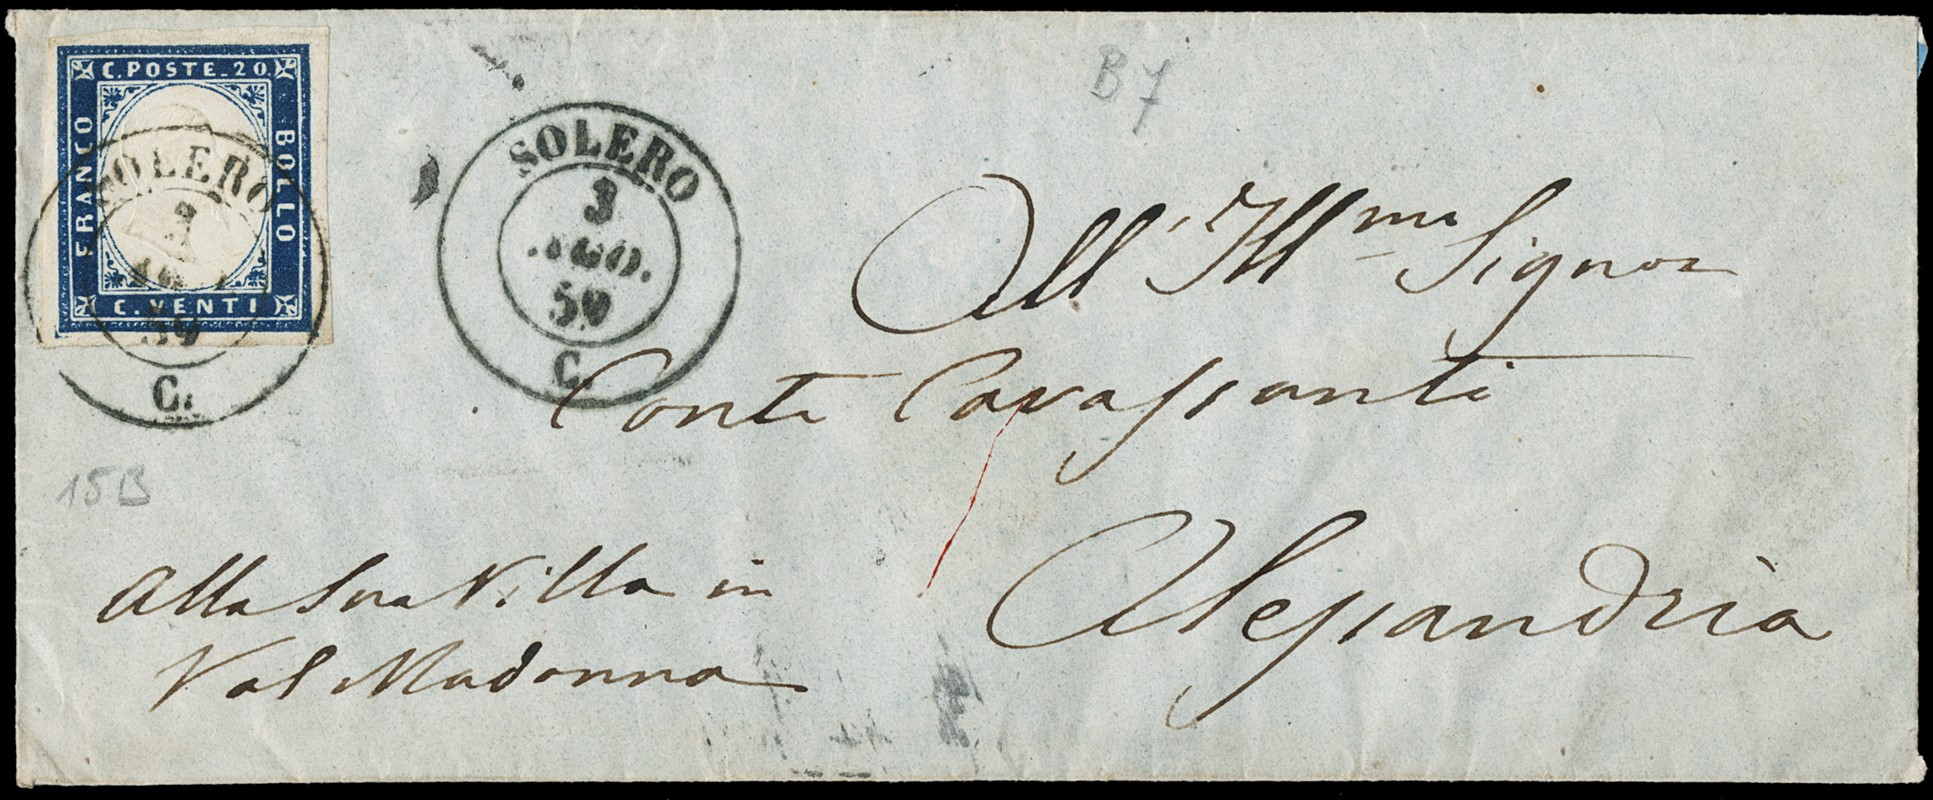 C. POSTE. 20.
FRANCO
BOLLO
C. VENTI
SOLERO
3
AGO.
59
C.
SOLERO
3
AGO.
59
C.
B7
15B
All' Illmo Signor
Conte Cavassanti
Alessandria
Alla Sua Villa in
Val Madonna